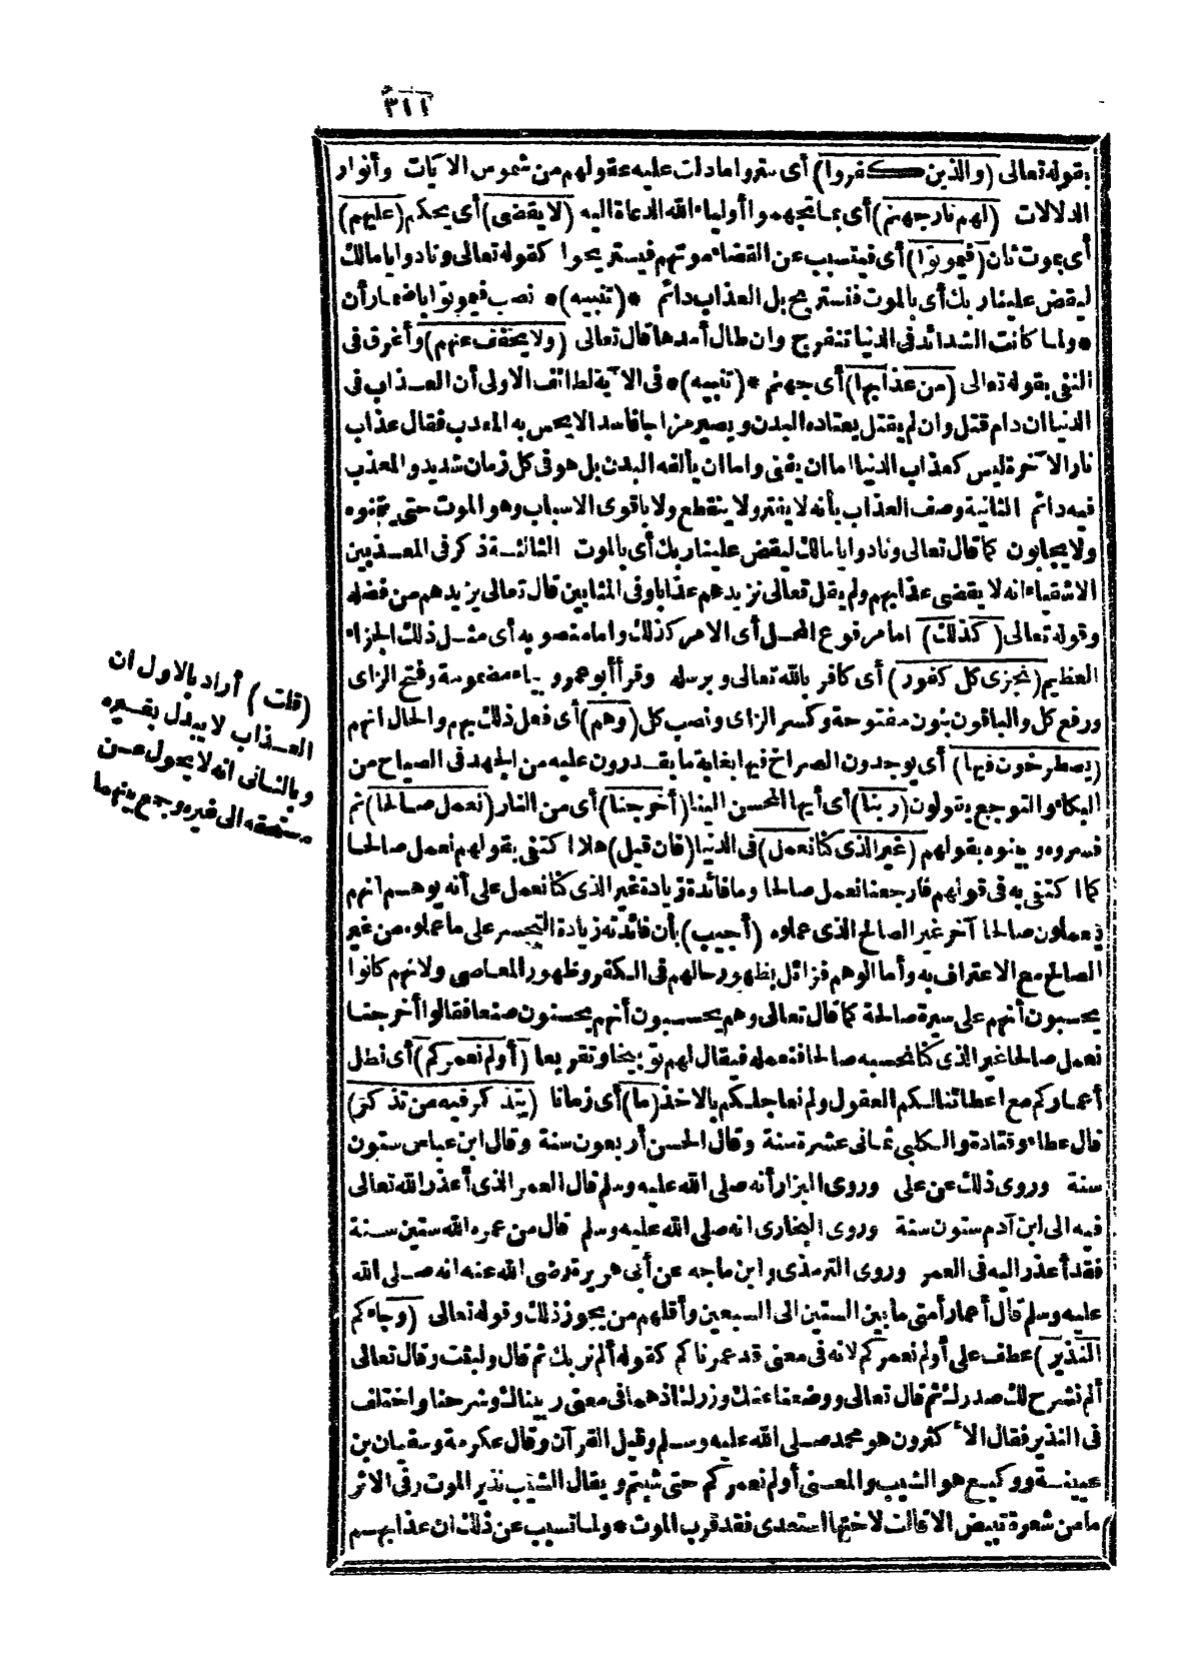 ٣١١
بقوله تعالى (والذين كفروا) أى ستروا مادلت عليه عقولهم من شموس الآيات وأنوار
الدلالات (لهم نار جهنم) أى بما تجهموا أولياء الله الدعاة اليه (لا يقضى) أى يحكم (عليهم)
أى بموت ثان (فيموتوا) أى فيتسبب عن القضاء موتهم فيستريحوا كقوله تعالى ونادوا يا مالك
ليقض علينا ربك أى بالموت فنستريح بل العذاب دائم * (تنبيه) * نصب فيموتوا باضمار أن
* ولما كانت الشدائد فى الدنيا تنفرج وان طال أمدها قال تعالى (ولا يخفف عنهم) وأغرق فى
النفى بقوله تعالى (من عذابها) أى جهنم * (تنبيه) * فى الآية لطائف الاولى أن العذاب فى
الدنيا ان دام قتل وان لم يقتل يعتاده البدن ويصير مزاجا فاسدا لا يحس به المعذب فقال عذاب
نار الآخرة ليس كعذاب الدنيا اما ان يفنى واما ان يألفه البدن بل هو فى كل زمان شديد والمعذب
فيه دائم الثانية وصف العذاب بأنه لا يفتر ولا ينقطع ولا بأقوى الاسباب وهو الموت حتى يتمنوه
ولا يجابون كما قال تعالى ونادوا يا مالك ليقض علينا ربك أى بالموت الثالثة ذكر فى المعذبين
الاشقياء انه لا يقضى عذابهم ولم يقل تعالى نزيدهم عذابا وفى المثابين قال تعالى يزيدهم من فضله
وقوله تعالى (كذلك) اما مرفوع المحل أى الامر كذلك واما منصوبه أى مثل ذلك الجزاء
العظيم (نجزى كل كفور) أى كافر بالله تعالى وبرسله وقرأ أبو عمرو بياء مضمومة وفتح الزاى
ورفع كل والباقون بنون مفتوحة وكسر الزاى ونصب كل (وهم) أى فعل ذلك بهم والحال انهم
(يصطرخون فيها) أى يوجدون الصراخ فيها بغاية ما يقدرون عليه من الجهد فى الصياح من
البكاء والتوجع يقولون (ربنا) أى أيها المحسن الينا (أخرجنا) أى من النار (نعمل صالحا) ثم
فسروه وبينوه بقولهم (غير الذى كنا نعمل) فى الدنيا (فان قيل) هلا اكتفى بقولهم نعمل صالحا
كما اكتفى به فى قولهم فارجعنا نعمل صالحا وما فائدة زيادة غير الذى كنا نعمل على أنه يوهم انهم
يعملون صالحا آخر غير الصالح الذى عملوه (أجيب) بأن فائدته زيادة التحسر على ما عملوه من غير
الصالح مع الاعتراف به وأما الوهم فزائل بظهور حالهم فى الكفر وظهور المعاصى ولانهم كانوا
يحسبون أنهم على سيرة صالحة كما قال تعالى وهم يحسبون أنهم يحسنون صنعا فقالوا أخرجنا
نعمل صالحا غير الذى كنا نحسبه صالحا فنعمله فيقال لهم توبيخا وتقريعا (أولم نعمركم) أى نطل
أعماركم مع اعطائنا لكم العقول ولم نعاجلكم بالاخذ (ما) أى زمانا (يتذكر فيه من تذكر)
قال عطاء وقتادة والكلبى ثمانى عشرة سنة وقال الحسن أربعون سنة وقال ابن عباس ستون
سنة وروى ذلك عن على وروى البزار أنه صلى الله عليه وسلم قال العمر الذى أعذر الله تعالى
فيه الى ابن آدم ستون سنة وروى البخارى انه صلى الله عليه وسلم قال من عمره الله ستين سنة
فقد أعذر اليه فى العمر وروى الترمذى وابن ماجه عن أبى هريرة رضى الله عنه انه صلى الله
عليه وسلم قال أعمار أمتى ما بين الستين الى السبعين وأقلهم من يجوز ذلك وقوله تعالى (وجاءكم
النذير) عطف على أولم نعمركم لانه فى معنى قد عمرناكم كقوله ألم نربك ثم قال ولبثت وقال تعالى
ألم نشرح لك صدرك ثم قال تعالى ووضعنا عنك وزرك اذهما فى معنى ربيناك وشرحنا واختلف
فى النذير فقال الأكثرون هو محمد صلى الله عليه وسلم وقيل القرآن وقال عكرمة وسفيان بن
عيينة ووكيع هو الشيب والمعنى أولم نعمركم حتى شبتم ويقال الشيب نذير الموت وفى الاثر
ما من شعرة تبيض الا قالت لاختها استعدى فقد قرب الموت * ولما تسبب عن ذلك ان عذابهم
(قلت) أراد بالاول ان
العذاب لا يبدل بغيره
وبالثانى انه لا يحول عن
مستحقه الى غيره وجمع بينهما